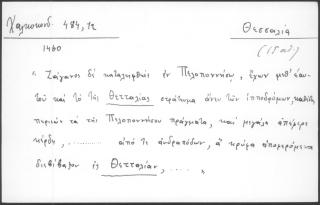 Χαλκοκονδ. 484,12
Θεσσαλία
1460
(15 αι)
"Ζάγανος δὲ καταλειφθεὶς ἐν Πελοποννήσῳ, ἔχων μεθ' ἑαυ-
τοῦ καὶ τὸ τῆς Θετταλίας στράτευμα ἄνευ τῶν ἱπποδρόμων,
περιιὼν τὰ τῆς Πελοποννήσου πράγματα, καὶ μεγάλα ἀπέφερε
κέρδη, .......... ἀπό τε ἀνδραπόδων, ἃ κρύφα ἀποφερόμενα
διεβίβαζον ἐς Θετταλίαν, ..... "